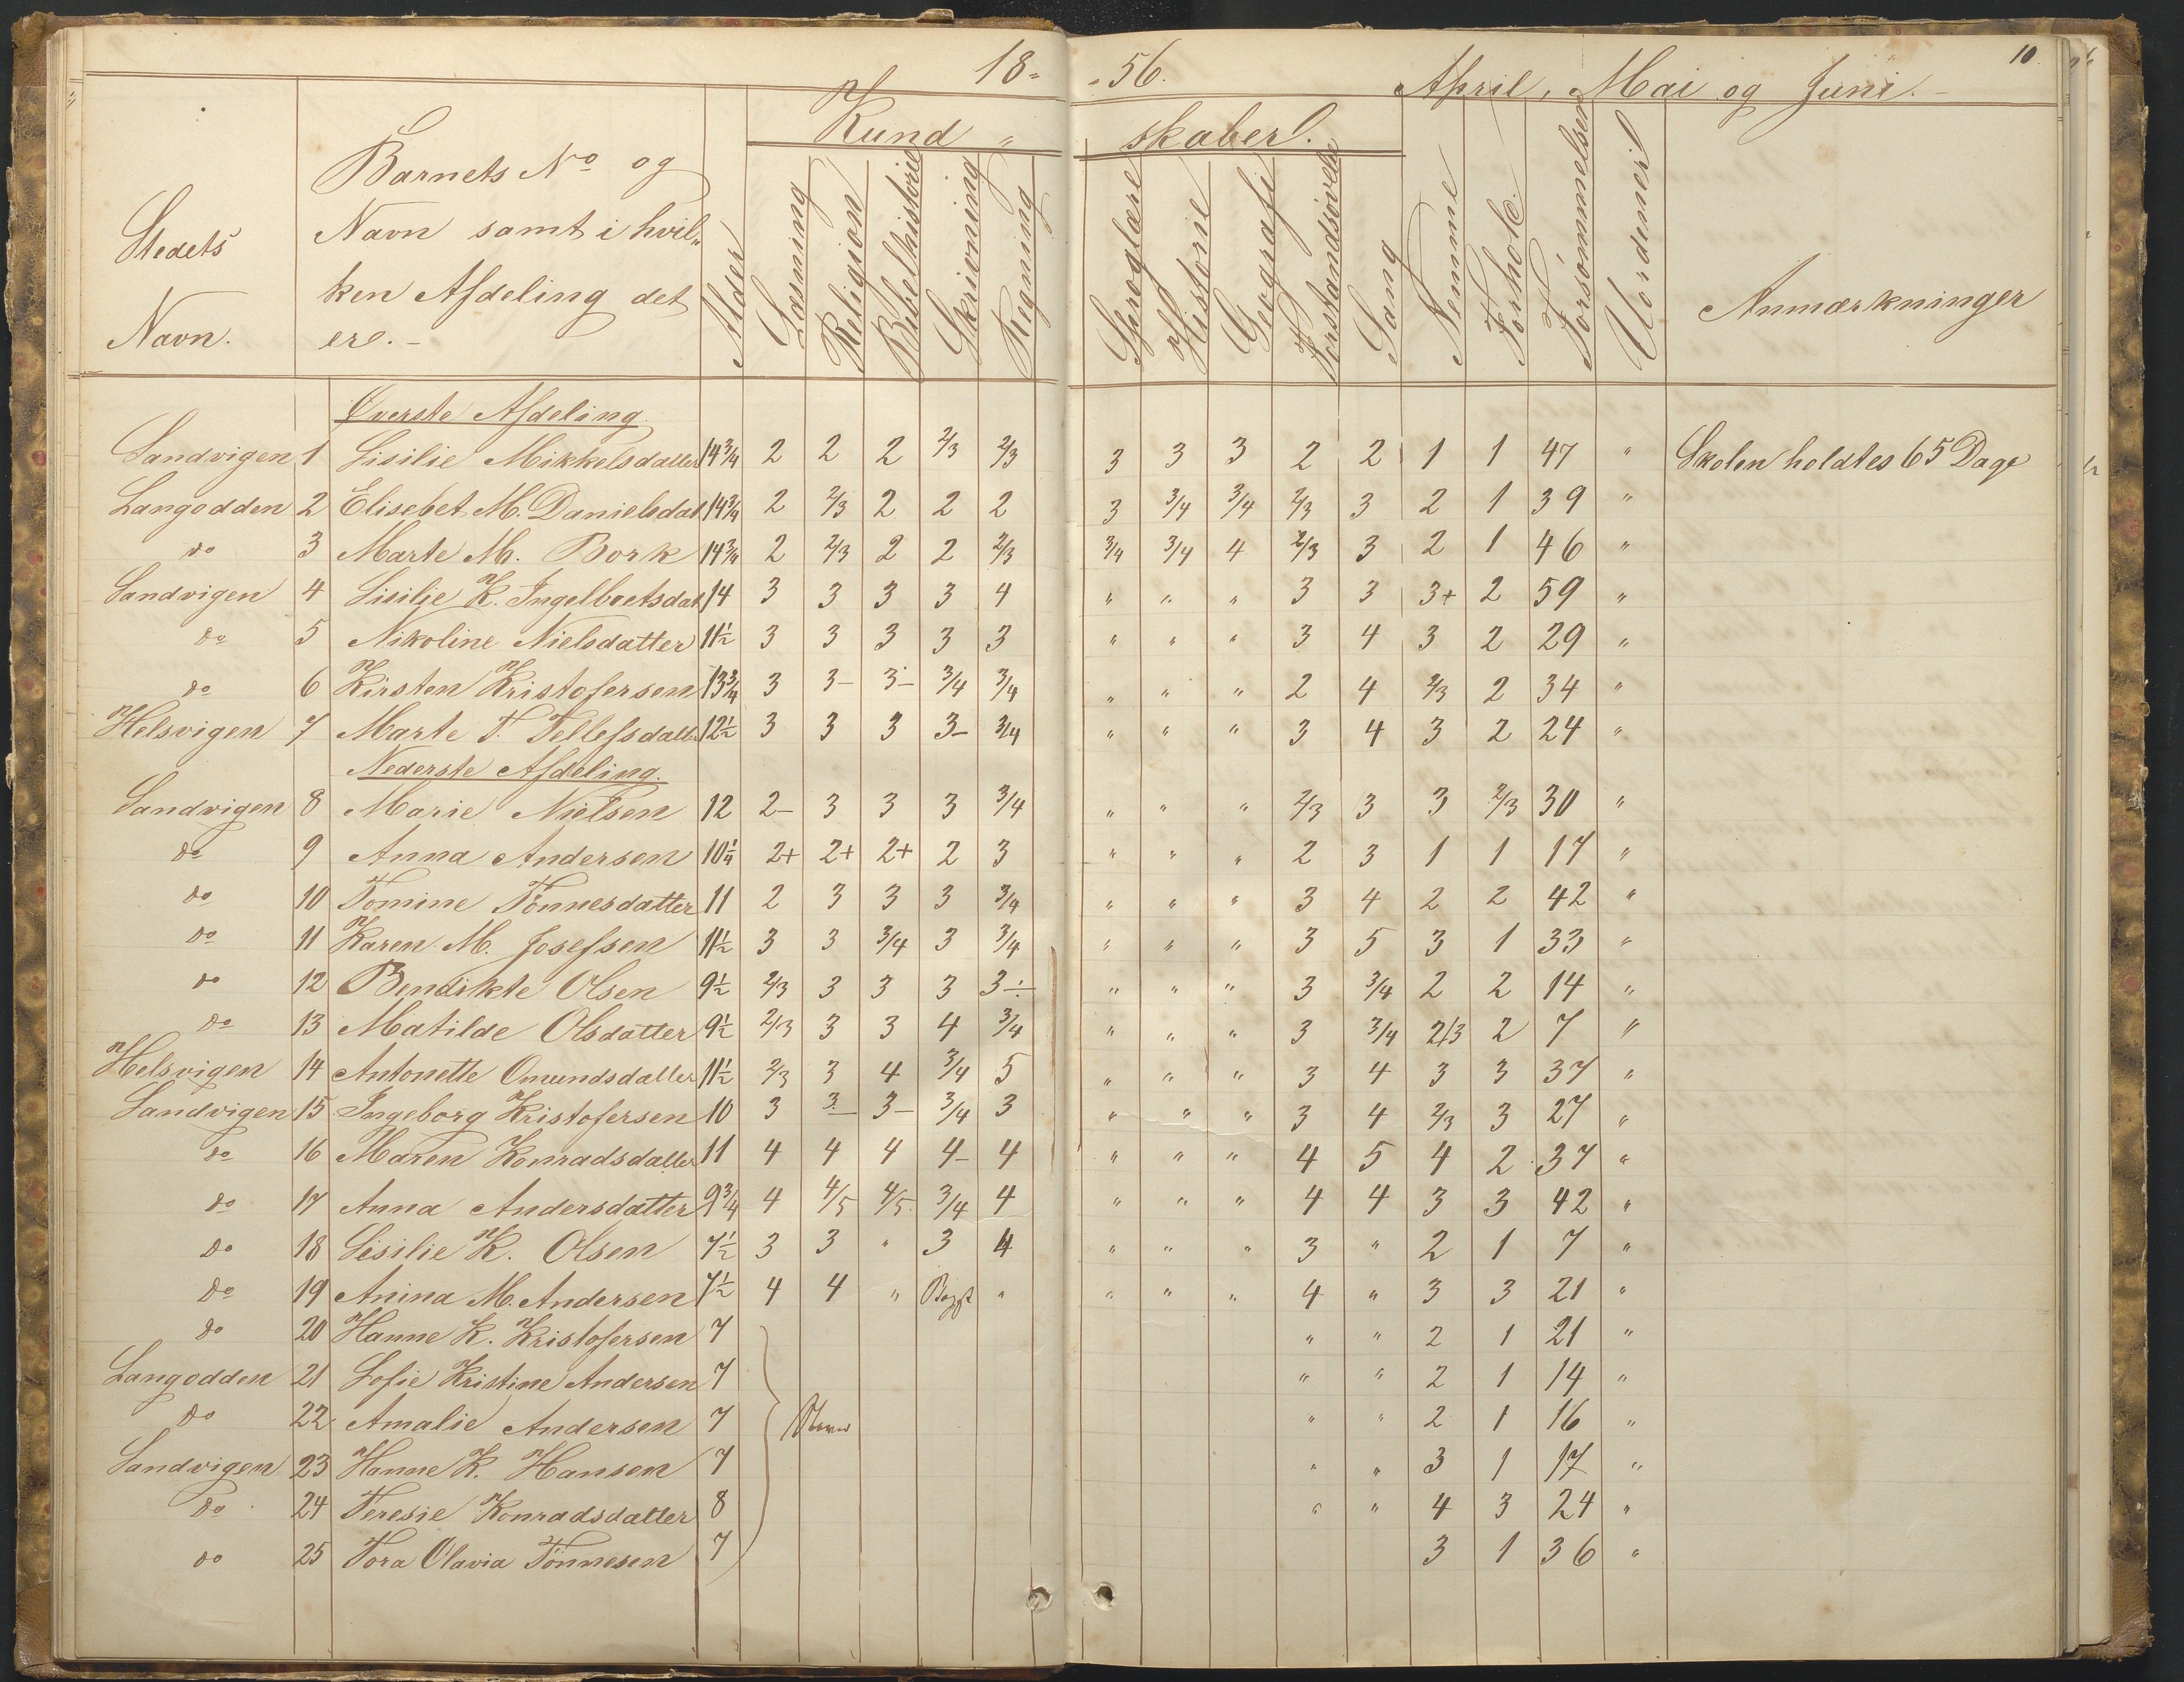 18 " " 56. April, Mai og Juni. — 10
Kund " skaber.
Stedets Navn.
Barnets No og
Navn samt i hvil"
ken Afdeling det
er. —
Alder Læsning Religion Bibelhistorie Skrivning Regning Sproglære Historie Geografi Forstandsøvelse Sang Nemme Forhold. Forsømmelser Uorden Anmærkninger
Øverste Afdeling.
Sandvigen 1 Sisilie Mikkelsdatter 14 3/4 2 2 2 2/3 2/3 3 3 3 2 2 1 1 47 " Skolen holdtes 65 Dage
Langodden 2 Elisebet M. Danielsdat 14 3/4 2 2/3 2 2 2 3 3/4 3/4 2/3 3 2 1 39 "
do 3 Marte M. Bork 14 3/4 2 2/3 2 2 2/3 3/4 3/4 4 2/3 3 2 1 46 "
Sandvigen 4 Sisilie K. Ingelbretsdat 14 3 3 3 3 4 " " " 3 3 3+ 2 59 "
do 5 Nikoline Nielsdatter 11 1/2 3 3 3 3 3 " " " 3 4 3 2 29 "
do 6 Kirsten Kristofersen 13 3/4 3 3- 3- 3/4 3/4 " " " 2 4 2/3 2 34 "
Helsvigen 7 Marte T. Tellefsdatter 12 1/2 3 3 3 3- 3/4 " " " 3 4 3 2 24 "
Nederste Afdeling.
Sandvigen 8 Marie Nielsen 12 2- 3 3 3 3/4 " " " 2/3 3 3 2/3 30 "
do 9 Anna Andersen 10 1/4 2+ 2+ 2+ 2 3 " " " 2 3 1 1 17 "
do 10 Tomine Tönnesdatter 11 2 3 3 3 3/4 " " " 3 4 2 2 42 "
do 11 Karen M. Josefsen 11 1/2 3 3 3/4 3 3/4 " " " 3 5 3 1 33 "
do 12 Bendikte Olsen 9 1/2 2/3 3 3 3 3÷ " " " 3 3/4 2 2 14 "
do 13 Matilde Olsdatter 9 1/2 2/3 3 3 4 3/4 " " " 3 3/4 2/3 2 7 "
Helsvigen 14 Antonette Omundsdatter 11 1/2 2/3 3 4 3/4 5 " " " 3 4 3 3 37 "
Sandvigen 15 Ingeborg Kristofersen 10 3 3- 3- 3/4 3 " " " 3 4 2/3 3 27 "
do 16 Maren Konradsdatter 11 4 4 4 4- 4 " " " 4 5 4 2 37 "
do 17 Anna Andersdatter 9 3/4 4 4/5 4/5 3/4 4 " " " 4 4 3 3 42 "
do 18 Sisilie K. Olsen 7 1/2 3 3 " 3 4 " " " 3 " 2 1 7 "
do 19 Anina M. Andersen 7 1/2 4 4 " Begyt " " " " 4 " 3 3 21 "
do 20 Hanne K. Kristofersen 7 " " 2 1 21 "
Langodden 21 Sofie Kristine Andersen 7 " " 2 1 14 "
do 22 Amalie Andersen 7 " " 2 1 16 "
Sandvigen 23 Hanne K. Hansen 7 " " 3 1 17 "
do 24 Teresie Konradsdatter 8 " " 4 3 24 "
do 25 Tora Olavia Tönnesen 7 3 1 36 "